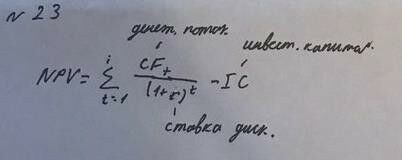 № 23
денеж. поток
инвест. капитал.
NPV = Σ i t=1 CF_t / (1+r)^t - IC
ставка диск.